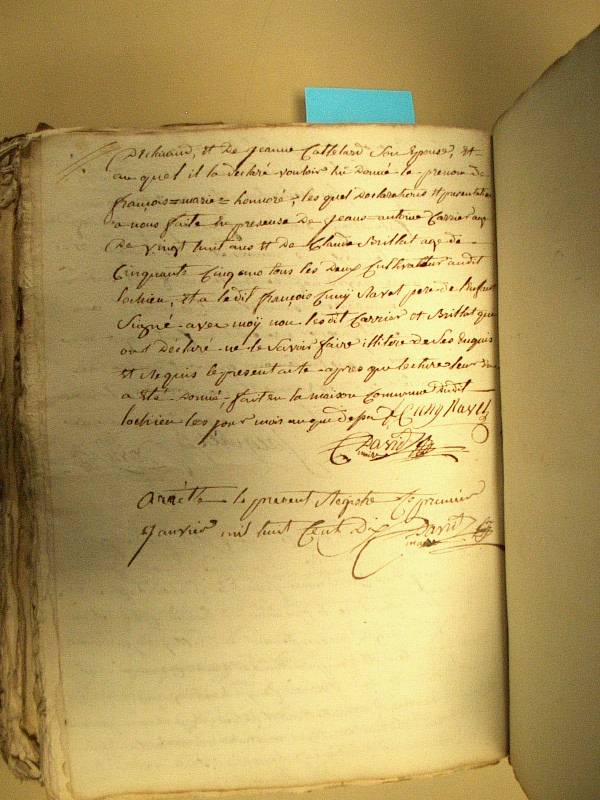 Déclarant, et De jeanne Catteland Son Epouse, Et
au quel il la declaré vouloir lui Donné le prenom de
françois=marie=honnoré; les quel Declarations Et presentation
a nous faite En presense De jean=antoine Carrier age
De vingt huit ans Et De Claude Brillat age de
Cinquante Cinq ans tous les Deux Cultivateur audit
lochieu, Et a ledit françois Cuny Ravet pere de
Signé avec moÿ non lesdit Carrier et Brillat qui
ont Déclaré ne le Savoir faire illitere de Ses Enquis
Et Requis le present acte apres que lecture leur En
a Eté Donné, fait en la maison Commune Dudit
lochieu les jour mois an que dessu Cuny Ravet
David
maire
Arrètté le present Registre le premier
Janvier mil huit Cent Dix David
maire